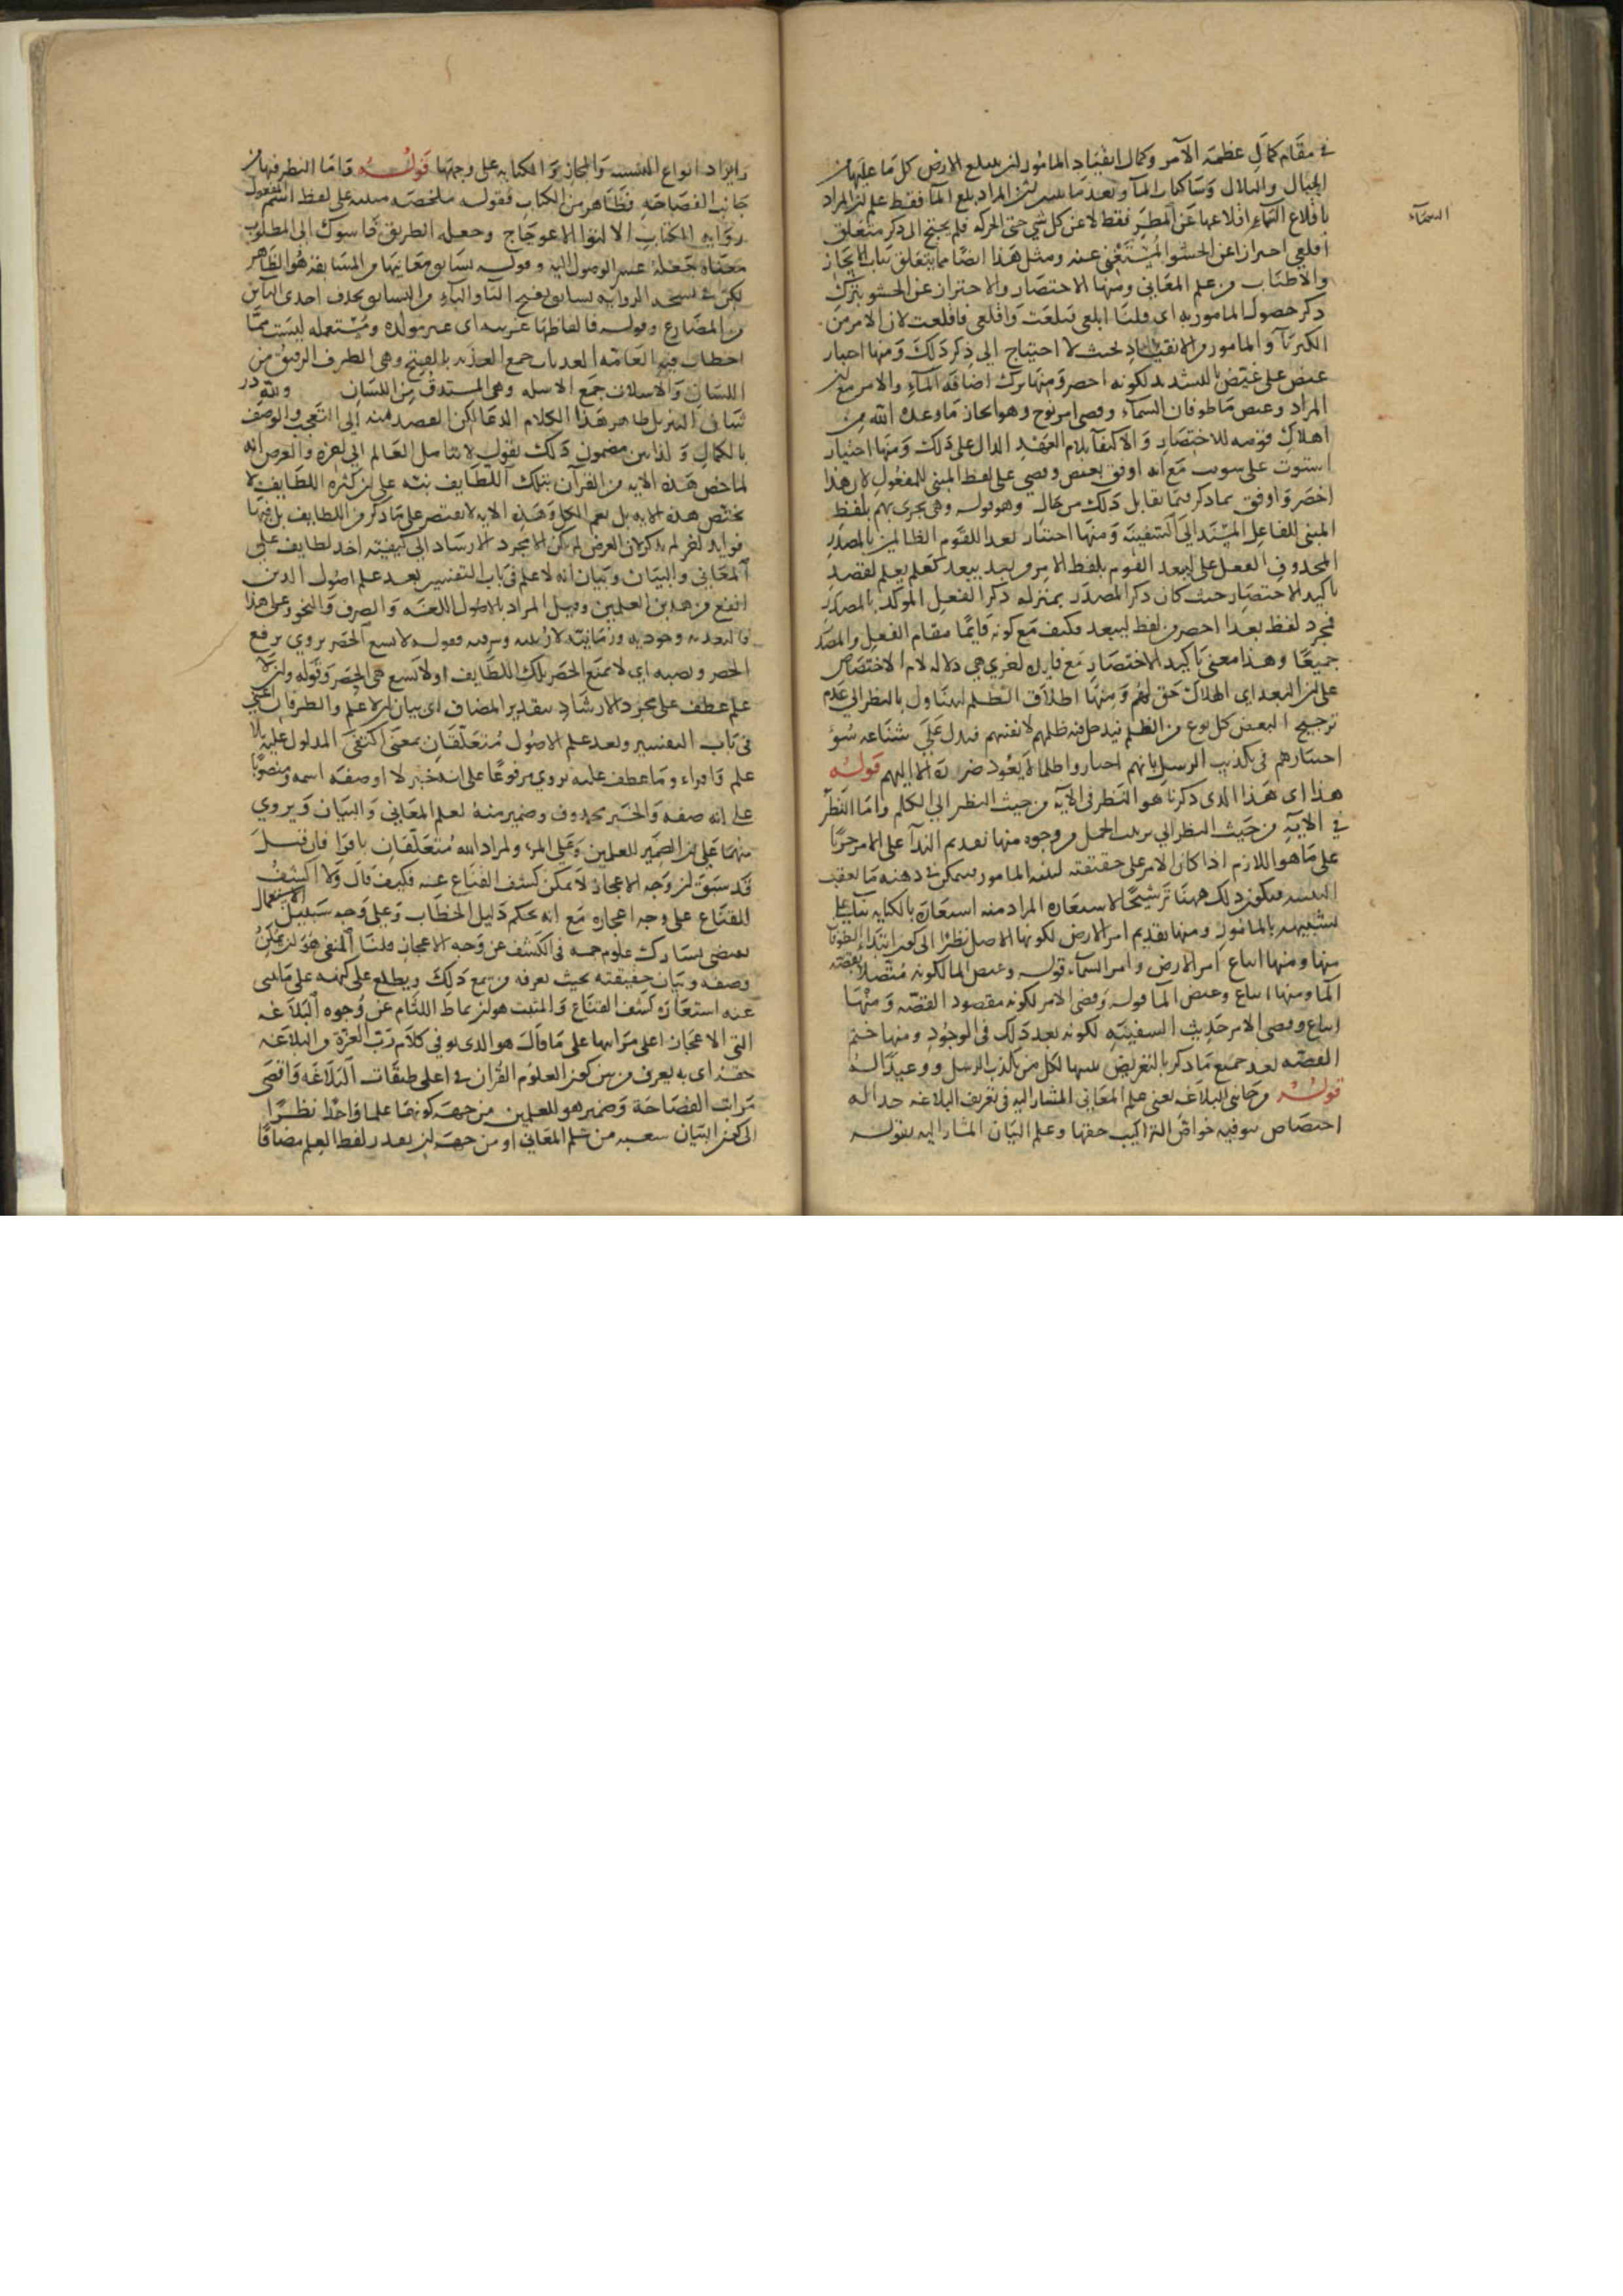 في مقام كمال عظمة الآمر وكمال انقياد المامور لن تبلع الارض كل ما عليها من
الجبال والتلال وساكنات الماء وبعد ما المراد بلع الماء فقط علم ان المراد
باقلاع السماء اقلاعها عن المطر فقط لا عن كل شي حتى الحركه فلم يحتج الى ذكر متعلق
السماء
اقلعي احترازا عن الحشو المستغنى عنه ومثل هذا ايضا مما يتعلق بباب الايجاز
والاطناب من علم المعاني ومنها الاختصار والاحتراز عن الحشو بترك
ذكر حصول المامور به اي قلنا ابلعي فبلعت واقلعي فاقلعت لان الامر من
الكبرياء والمامور والانقياد بحيث لا احتياج الى ذكر ذلك ومنها اختيار
غيض على غيض بالتشديد لكونه اخصر ومنها ترك اضافة الماء والامر مع ان
المراد وغيض ماء طوفان السماء وقضي امر نوح وهو انجاز ما وعده الله من
اهلاك قومه للاختصار والاكتفاء بلام العهد الدال على ذلك ومنها اختيار
استوت على سويت مع انه اوفق بغيض وقضي على لفظ المبني للمفعول لان هذا
اخصر واوفق بما ذكر فيما يقابل ذلك من حال وهو قوله وهي تجري بهم بلفظ
المبني للفاعل المسند الى السفينه ومنها اختيار بعدا للقوم الظالمين بالمصدر
المحذوف الفعل على ليبعد القوم بلفظ الامر من بعد يبعد كعلم يعلم لقصد
تاكيد الاختصار حيث كان ذكر المصدر بمنزله ذكر الفعل الموكد بالمصدر
فمجرد لفظ بعدا اخصر من لفظ ليبعد فكيف مع كونه قايما مقام الفعل والمصدر
جميعا وهذا معنى تاكيد الاختصار مع فايده اخرى هي دلاله لام الاختصاص
على ان البعد اي الهلاك حق لهم ومنها اطلاق الظلم ليتناول بالنظر الى عدم
ترجيح البعض كل نوع من الظلم فيدخل فيه ظلمهم لانفسهم فيدل على شناعه سوء
اختيارهم في تكذيب الرسل بانهم اختاروا ظلما لا يعود ضرره الا اليهم قوله
هذا اي هذا الذي ذكرنا هو النظر في الآيه من حيث النظر الى الكلم واما النظر
في الآيه من حيث النظر الى ترتيب الجمل من وجوه منها تقديم النداء على الامر جريا
على ما هو اللازم اذا كان الامر على حقيقته لينبه المامور فيتمكن في ذهنه ما يعقب
التنبيه فيكون ذلك ههنا ترشيحا لاستعاره المراد منه استعاره بالكنايه بناء على
تشبيهه بالمامور ومنها تقديم امر الارض لكونها الاصل نظرا الى كون ابتداء الطوفان
منها ومنها اتباع امر الارض وامر السماء قوله وغيض الماء لكونه متصلا بقصه
الماء ومنها اتباع وغيض الماء قوله وقضي الامر لكونه مقصود القصه ومنها
اتباع وقضي الامر حديث السفينه لكونه بعد ذلك في الوجود ومنها ختم
القصه بعد جميع ما ذكر بالتعريض تنبيها لكل من يكذب الرسل ووعيدا له
قوله من جانبي البلاغه يعني علم المعاني المشار اليه في تعريف البلاغه
اختصاص بتوفيه خواص التراكيب حقها وعلم البيان المشار اليه بقوله
وايراد انواع التشبيه والمجاز والكنايه على وجهها قوله واما النظر فيها من
جانب الفصاحه فظاهر من الكتاب فقوله ملخصه مبنيه على لفظ اسم المفعول
روايه الكتاب الالتواء الاعوجاج وجعله الطريق سوك الى المطلوب
معناه جعله عند الوصول اليه وقوله تسابق معانيها من المسابقه هو الظاهر
لكن في نسخه الروايه تسابق بفتح التاء والباء من التسابق بحذف احدى التائين
من المضارع وقوله فالفاظها عربيه اي غير مولده ومستعمله ليست مما
العامه العذبات جمع العذبه بالفتح وهي الطرف الرقيق من
اللسان والاسلات جمع الاسله وهي المستدق من اللسان ولله در
شان التنزيل ظاهر هذا الكلام الدعاء لكن القصد منه الى التعجب والوصف
بالكمال ولذا مضمون ذلك بقوله لا يتامل العالم الى اخره والغرض انه
لما خص هذه الايه من القرآن بتلك اللطايف نبه على ان كثره اللطايف لا
يختص هذه الايه بل يعم الكل وهذه الايه لا تقتصر على ما ذكر من اللطايف بل فيها
فوايد اخر لم يذكر لان الغرض لم يكن الا مجرد الارشاد الى كيفيته اخذ لطايف علمي
المعاني والبيان وبيان انه لا علم في باب التفسير بعد علم اصول الدين
انفع من هذين العلمين وقيل المراد بالاصول اللغه والصرف والنحو وعلى هذا
فالبعديه وجوديه وزمانيه لا رتبيه وشرفيه فقوله لا يسع الحصر يروى برفع
الحصر ونصبه اي لا يمنع الحصر تلك اللطايف او لا تسع هي الحصر وقوله وان لا
علم عطف على مجرد الارشاد بتقدير المضاف اي بيان ان لا علم والظرفان اعني
في باب التفسير وبعد علم الاصول متعلقان بمعنى النفي المدلول عليه بلا
علم واقراء وما عطف عليه يروى مرفوعا على انه خبر لا او صفه اسمه ومنصوبا
على انه صفه والخبر محذوف وضمير منه لعلم المعاني والبيان ويروى
منهما على ان الضمير للعلمين وعلى المرء ولمراد الله متعلقان باقرا فان قيل
قد سبق ان وجه الاعجاز لا يمكن كشف القناع عنه فكيف قال ولا اكشف
للقناع على وجه اعجازه مع انه بحكم دليل الخطاب وعلى وجه سبيل الاستعمال
يقتضي مشاركه علوم جمه في الكشف عن وجه الاعجاز قلنا المنفي هو ان يمكن
وصفه وبيان حقيقته بحيث يعرفه من سمع ذلك ويطلع على كنهه على ما ينبئ
عنه استعاره كشف القناع والمثبت هو ان يماط اللثام عن وجوه البلاغه
التي الاعجاز اعلى مراتبها على ما قال هو الذي يوفي كلام رب العزة من البلاغه
حقه اي به يعرف من بين العلوم القران في اعلى طبقات البلاغه واقصى
مراتب الفصاحه وضمير هو للعلمين من جهة كونهما علما واحدا نظرا
الى كون البيان شعبه من علم المعاني او من جهة ان يقدر لفظ العلم مضافا